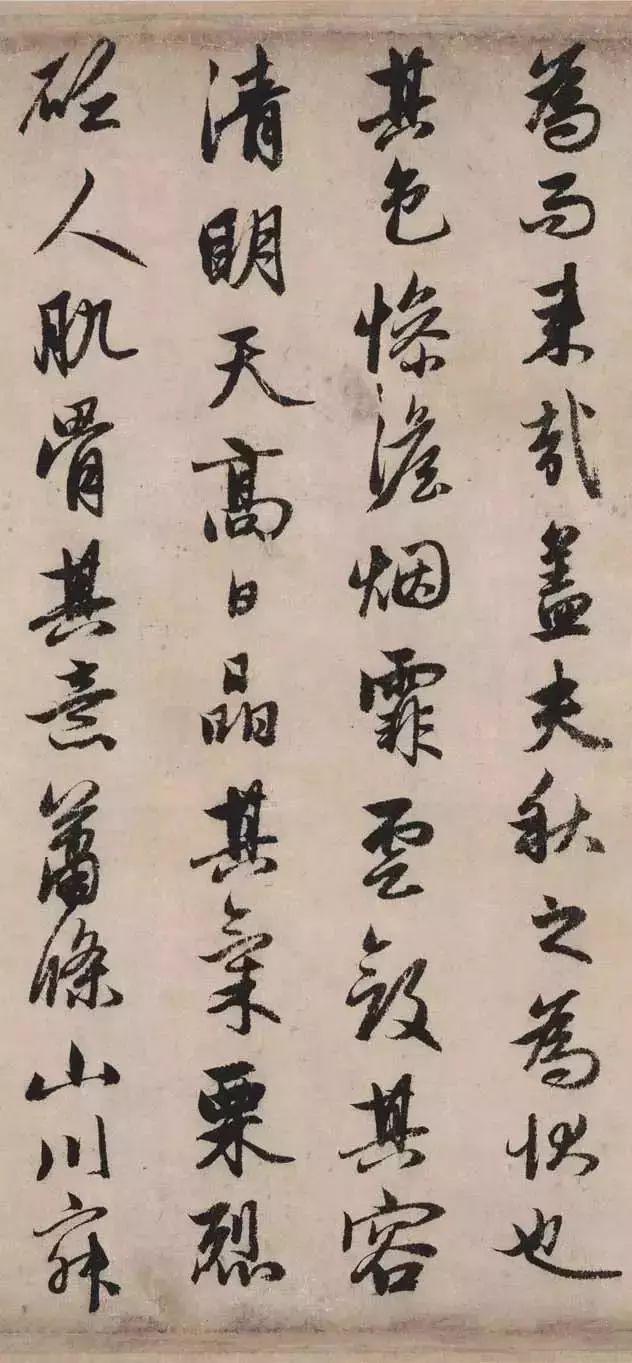 為而来哉盖夫秋之為状也
其色惨澹烟霏雲斂其容
清明天高日晶其氣栗烈
砭人肌骨其意蕭條山川寂